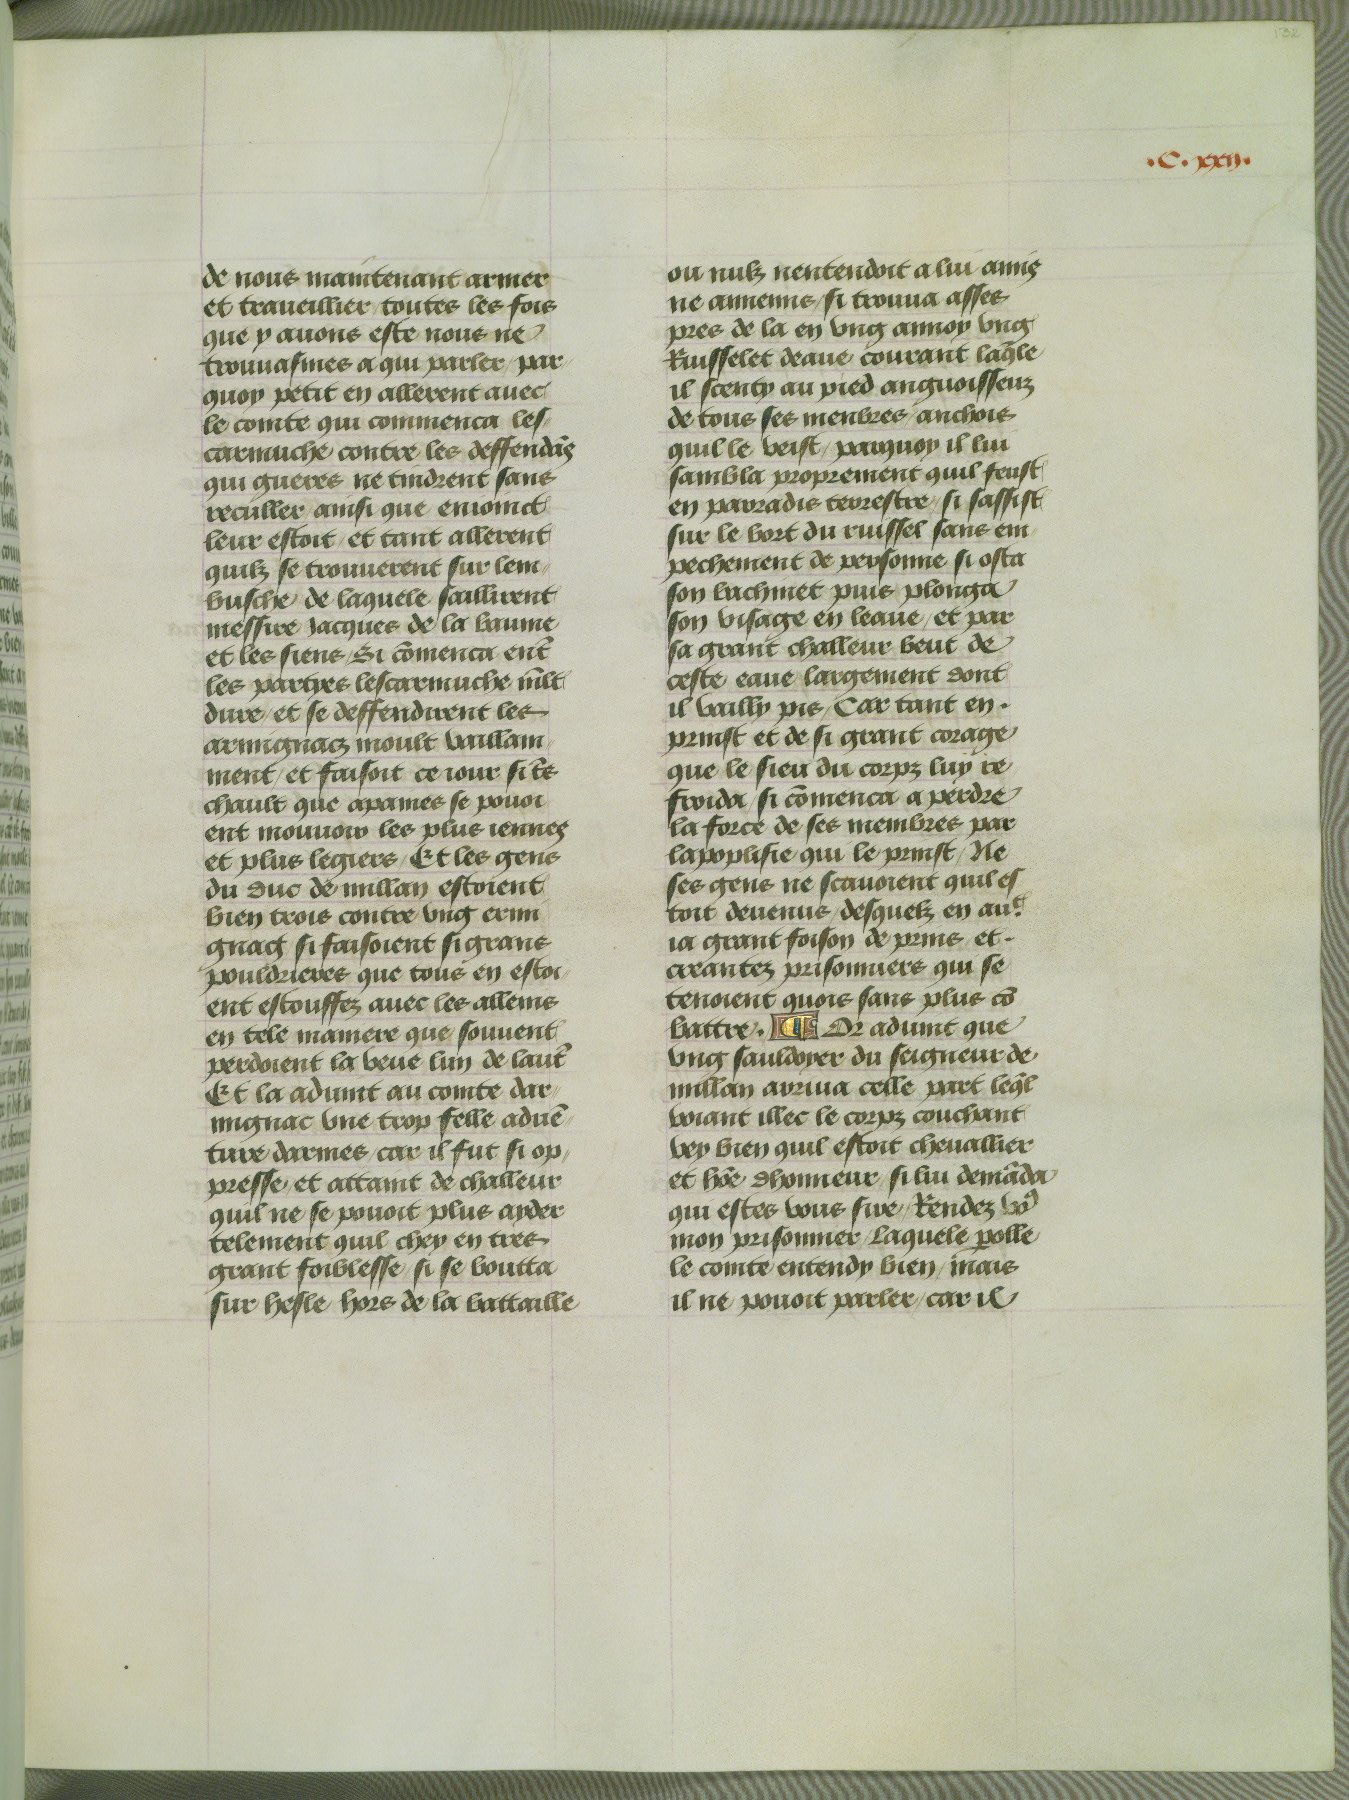 132
.C. xxij.
de nous maintenant armer
et traueillier toutes les fois
que y auons este nous ne
trouuasmes a qui parler / par
quoy petit en allerent auec
le comte qui commenca les
carmuche contre les deffendãs
qui gueres ne tindrent sans
reculler ainsi que enioinct
leur estoit / et tant allerent
quilz se trouuerent sur lem
busche de laquele saillirent
messire Jacques de la baume
et les siens / Si cõmenca ent̃
les partyes lescarmuche m̃lt
dure / et se deffendirent les
armignacz moult vaillam
ment / et faisoit ce iour si tẽs
chault que apaines se pouoi
ent mouuoir les plus iennes
et plus legiers / Et les gens
du duc de millan estoient
bien trois contre vng ermi
gnacz si faisoient si grans
pouldrieres que tous en estoi
ent estouffez auec les allems
en tele maniere que souuent
perdoient la veue lun de laut̃
Et la aduint au comte dar
mignac vne trop felle aduẽ
ture darmes / car il fut si op
presse / et attaint de challeur
quil ne se pouoit plus ayder
telement quil chey en tres
grant foiblesse / si se boutta
sur hesle hors de la battaille
ou nulz nentendoit a lui amis
ne annemis / si trouua asses
pres de la en vng annoy vng
Ruisselet deaue courant laq̃le
il scenty au pied anguoisseuz
de tous ses menbres / anchois
quil le veist / parquoy il lui
sambla proprement quil feust
en parradis terrestre / si sassist
sur le bort du ruissel sans em
pechement de personne si osta
son bachinet puis plonga
son visage en leaue / et par
sa grant challeur beut de
ceste eaue largement dont
il vailly pis / Car tant en .
prinst et de si grant corage
que le sieu du corpz luy re
froida / si cõmenca a perdre
la force de ses membres par
lapoplisie qui le prinst / Ne
ses gens ne scauoient quil es
toit deuenus / desquelz en au.
ia grant foison de prins / et .
creantez prisonniers qui se
tenoient quois sans plus cõ
battre . Or aduint que
vng sauldoyer du seigneur de
millan arriua celle part leq̃l
voiant illec le corpz couchant
vey bien quil estoit cheuallier
et hõe dhonneur / si lui demãda
qui estes vous sire / Rendez vo9
mon prisonnier / Laquele polle
le comte entendy bien / mais
il ne pouoit parler / car il